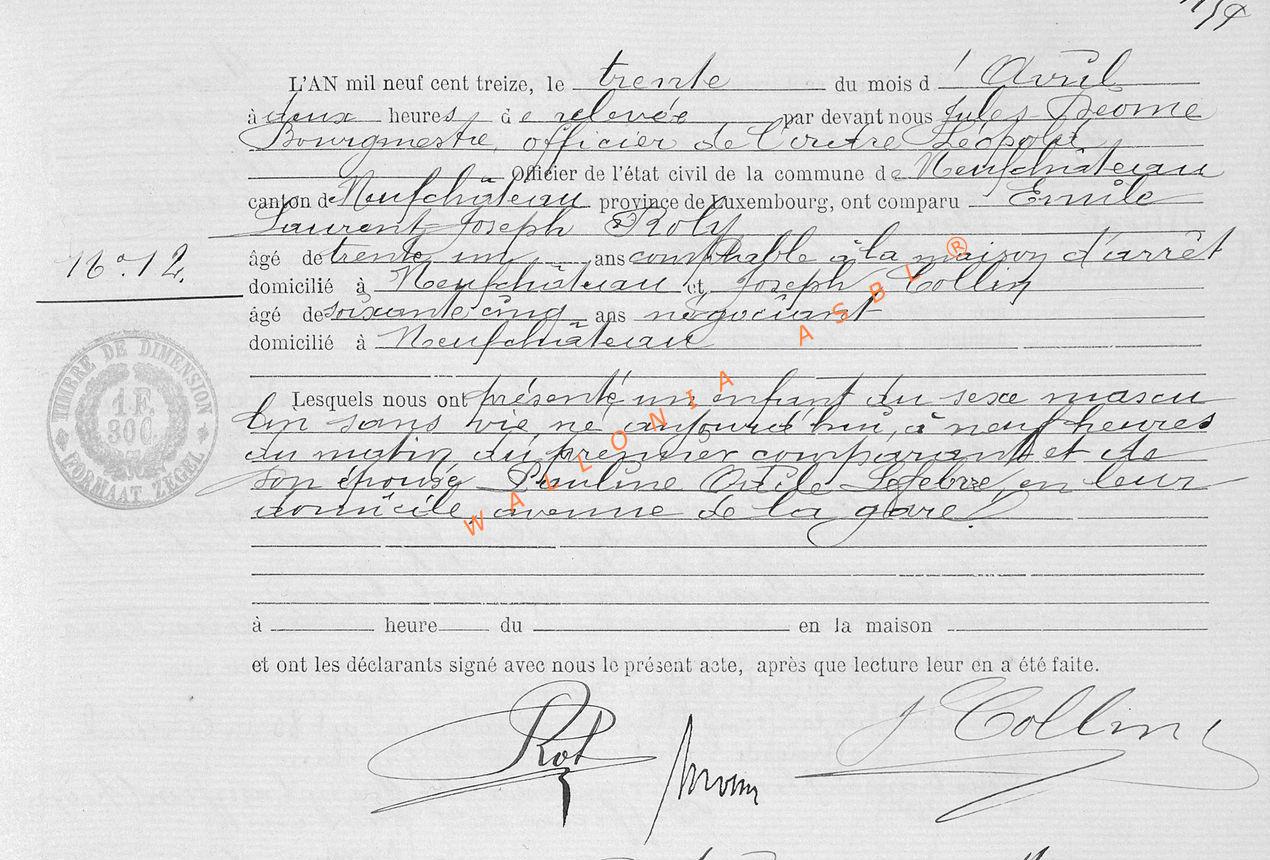 L'AN mil neuf cent treize, le trente du mois d'Avril
à deux heures de relevée par devant nous Jules Deome
Bourgmestre, officier de l'ordre Léopold
Officier de l'état civil de la commune de Neufchâteau
canton de Neufchâteau province de Luxembourg, ont comparu Emile
Laurent Joseph Roly
N° 12.
âgé de trente un ans comptable à la maison d'arrêt
domicilié à Neufchâteau et, Joseph Collin
âgé de soixante cinq ans négociant
domicilié à Neufchâteau
TIMBRE DE DIMENSION
1 F.
30 C.
FORMAAT ZEGEL
Lesquels nous ont présenté un enfant du sexe mascu
lin sans vie, né aujourd'hui, à neuf heures
du matin du premier comparant et de
son épouse Pauline Lefebvre, en leur
domicile, avenue de la gare.
à heure du en la maison
et ont les déclarants signé avec nous le présent acte, après que lecture leur en a été faite.
J Collin
WALLONIA ASBL ®